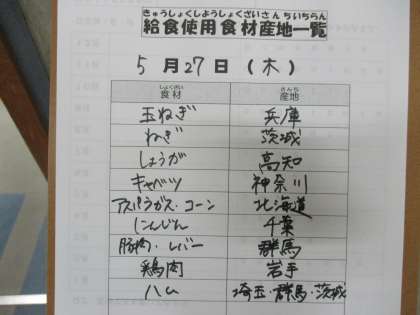 きゅうしょくしようしょくざいさんちいちらん
給食使用食材産地一覧
5月27日(木)
しょくざい さんち
食材 産地
玉ねぎ 兵庫
ねぎ 茨城
しょうが 高知
キャベツ 神奈川
アスパラガス・コーン 北海道
にんじん 千葉
豚肉・レバー 群馬
鶏肉 岩手
ハム 埼玉・群馬・茨城